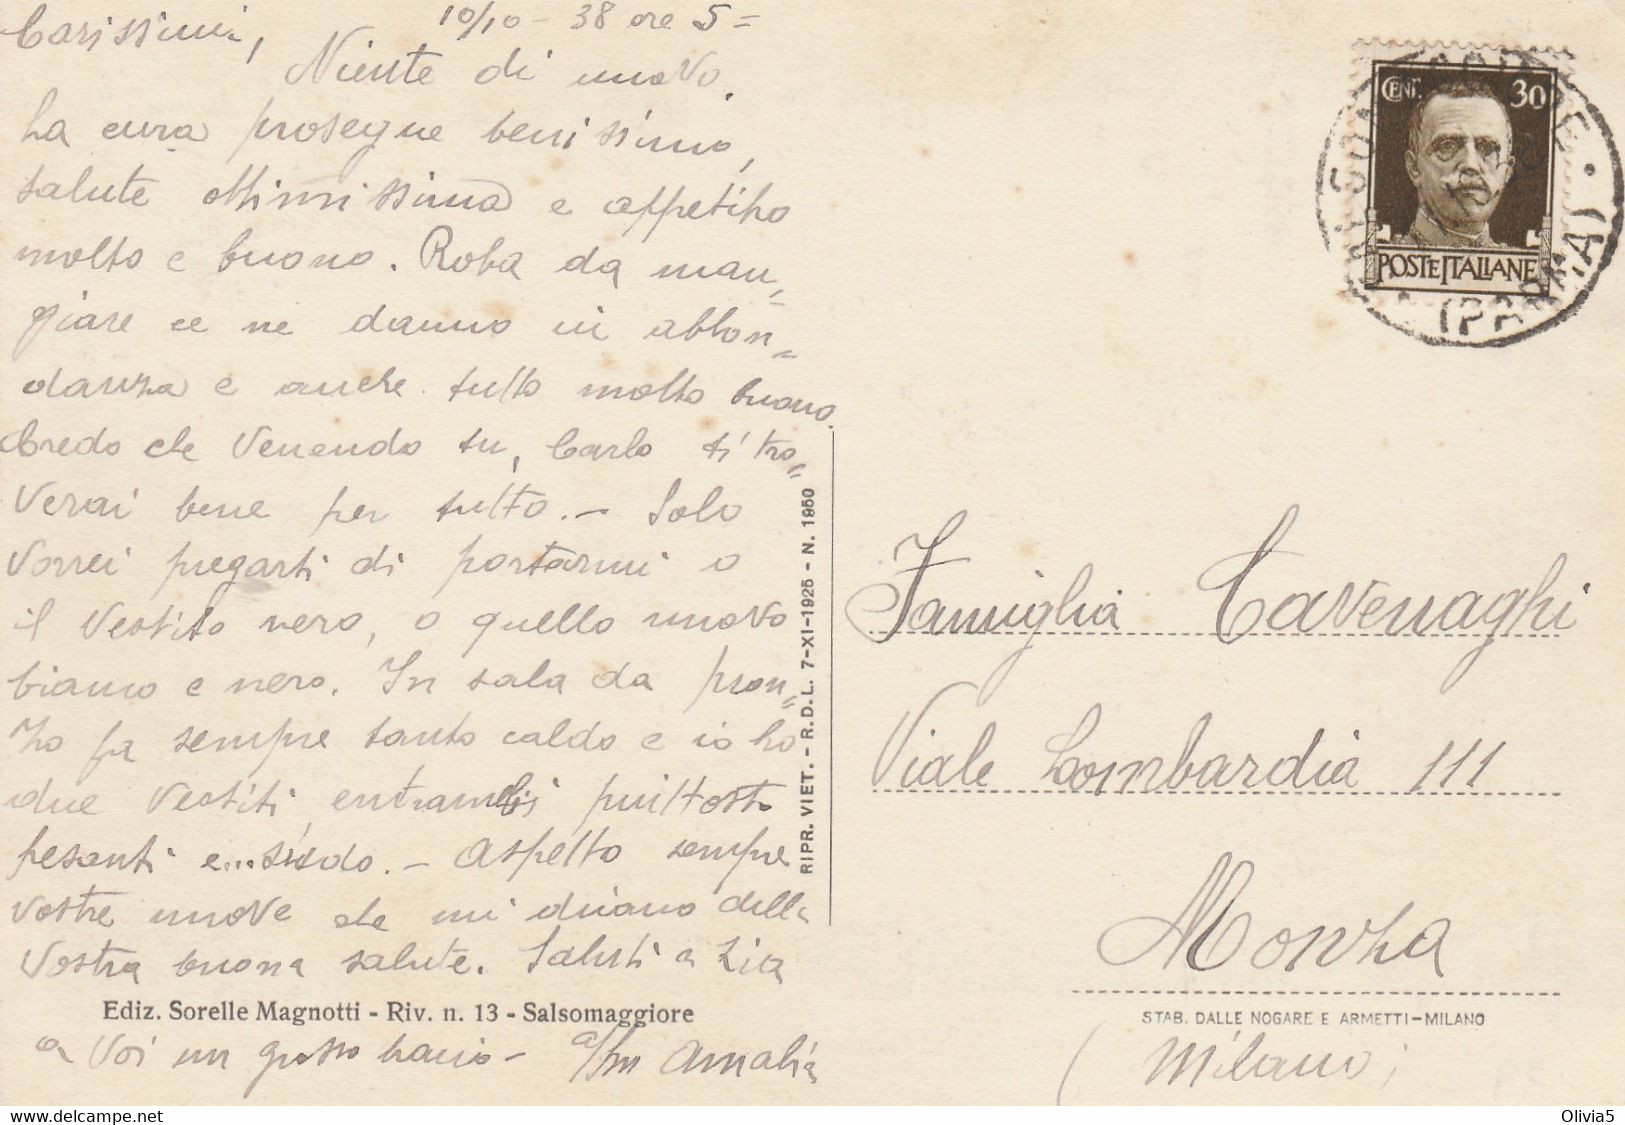 10/10 - 38 ore 5 =
Carissimi,
Niente di nuovo.
La cura prosegue benissimo,
salute ottimissima e appetito
molto e buono. Roba da man=
giare ce ne danno in abbon=
danza e anche tutto molto buono.
Credo che venendo tu, Carlo ti tro=
verai bene per tutto. - Solo
vorrei pregarti di portarmi o
il vestito nero, o quello nuovo
bianco e nero. In sala da pran=
zo fa sempre tanto caldo e io ho
due vestiti, entrambi piuttosto
pesanti e... sudo. - Aspetto sempre
vostre nuove che mi dicano della
vostra buona salute. Saluti a Zia
Ediz. Sorelle Magnotti - Riv. n. 13 - Salsomaggiore
a voi un grosso bacio - Amalia
RIPR. VIET. - R.D.L. 7-XI-1925 - N. 1950
CENT. 30
POSTE ITALIANE
(PARMA)
Famiglia Cavenaghi
Viale Lombardia 111
Monza
STAB. DALLE NOGARE E ARMETTI-MILANO
(Milano)
Olivia5